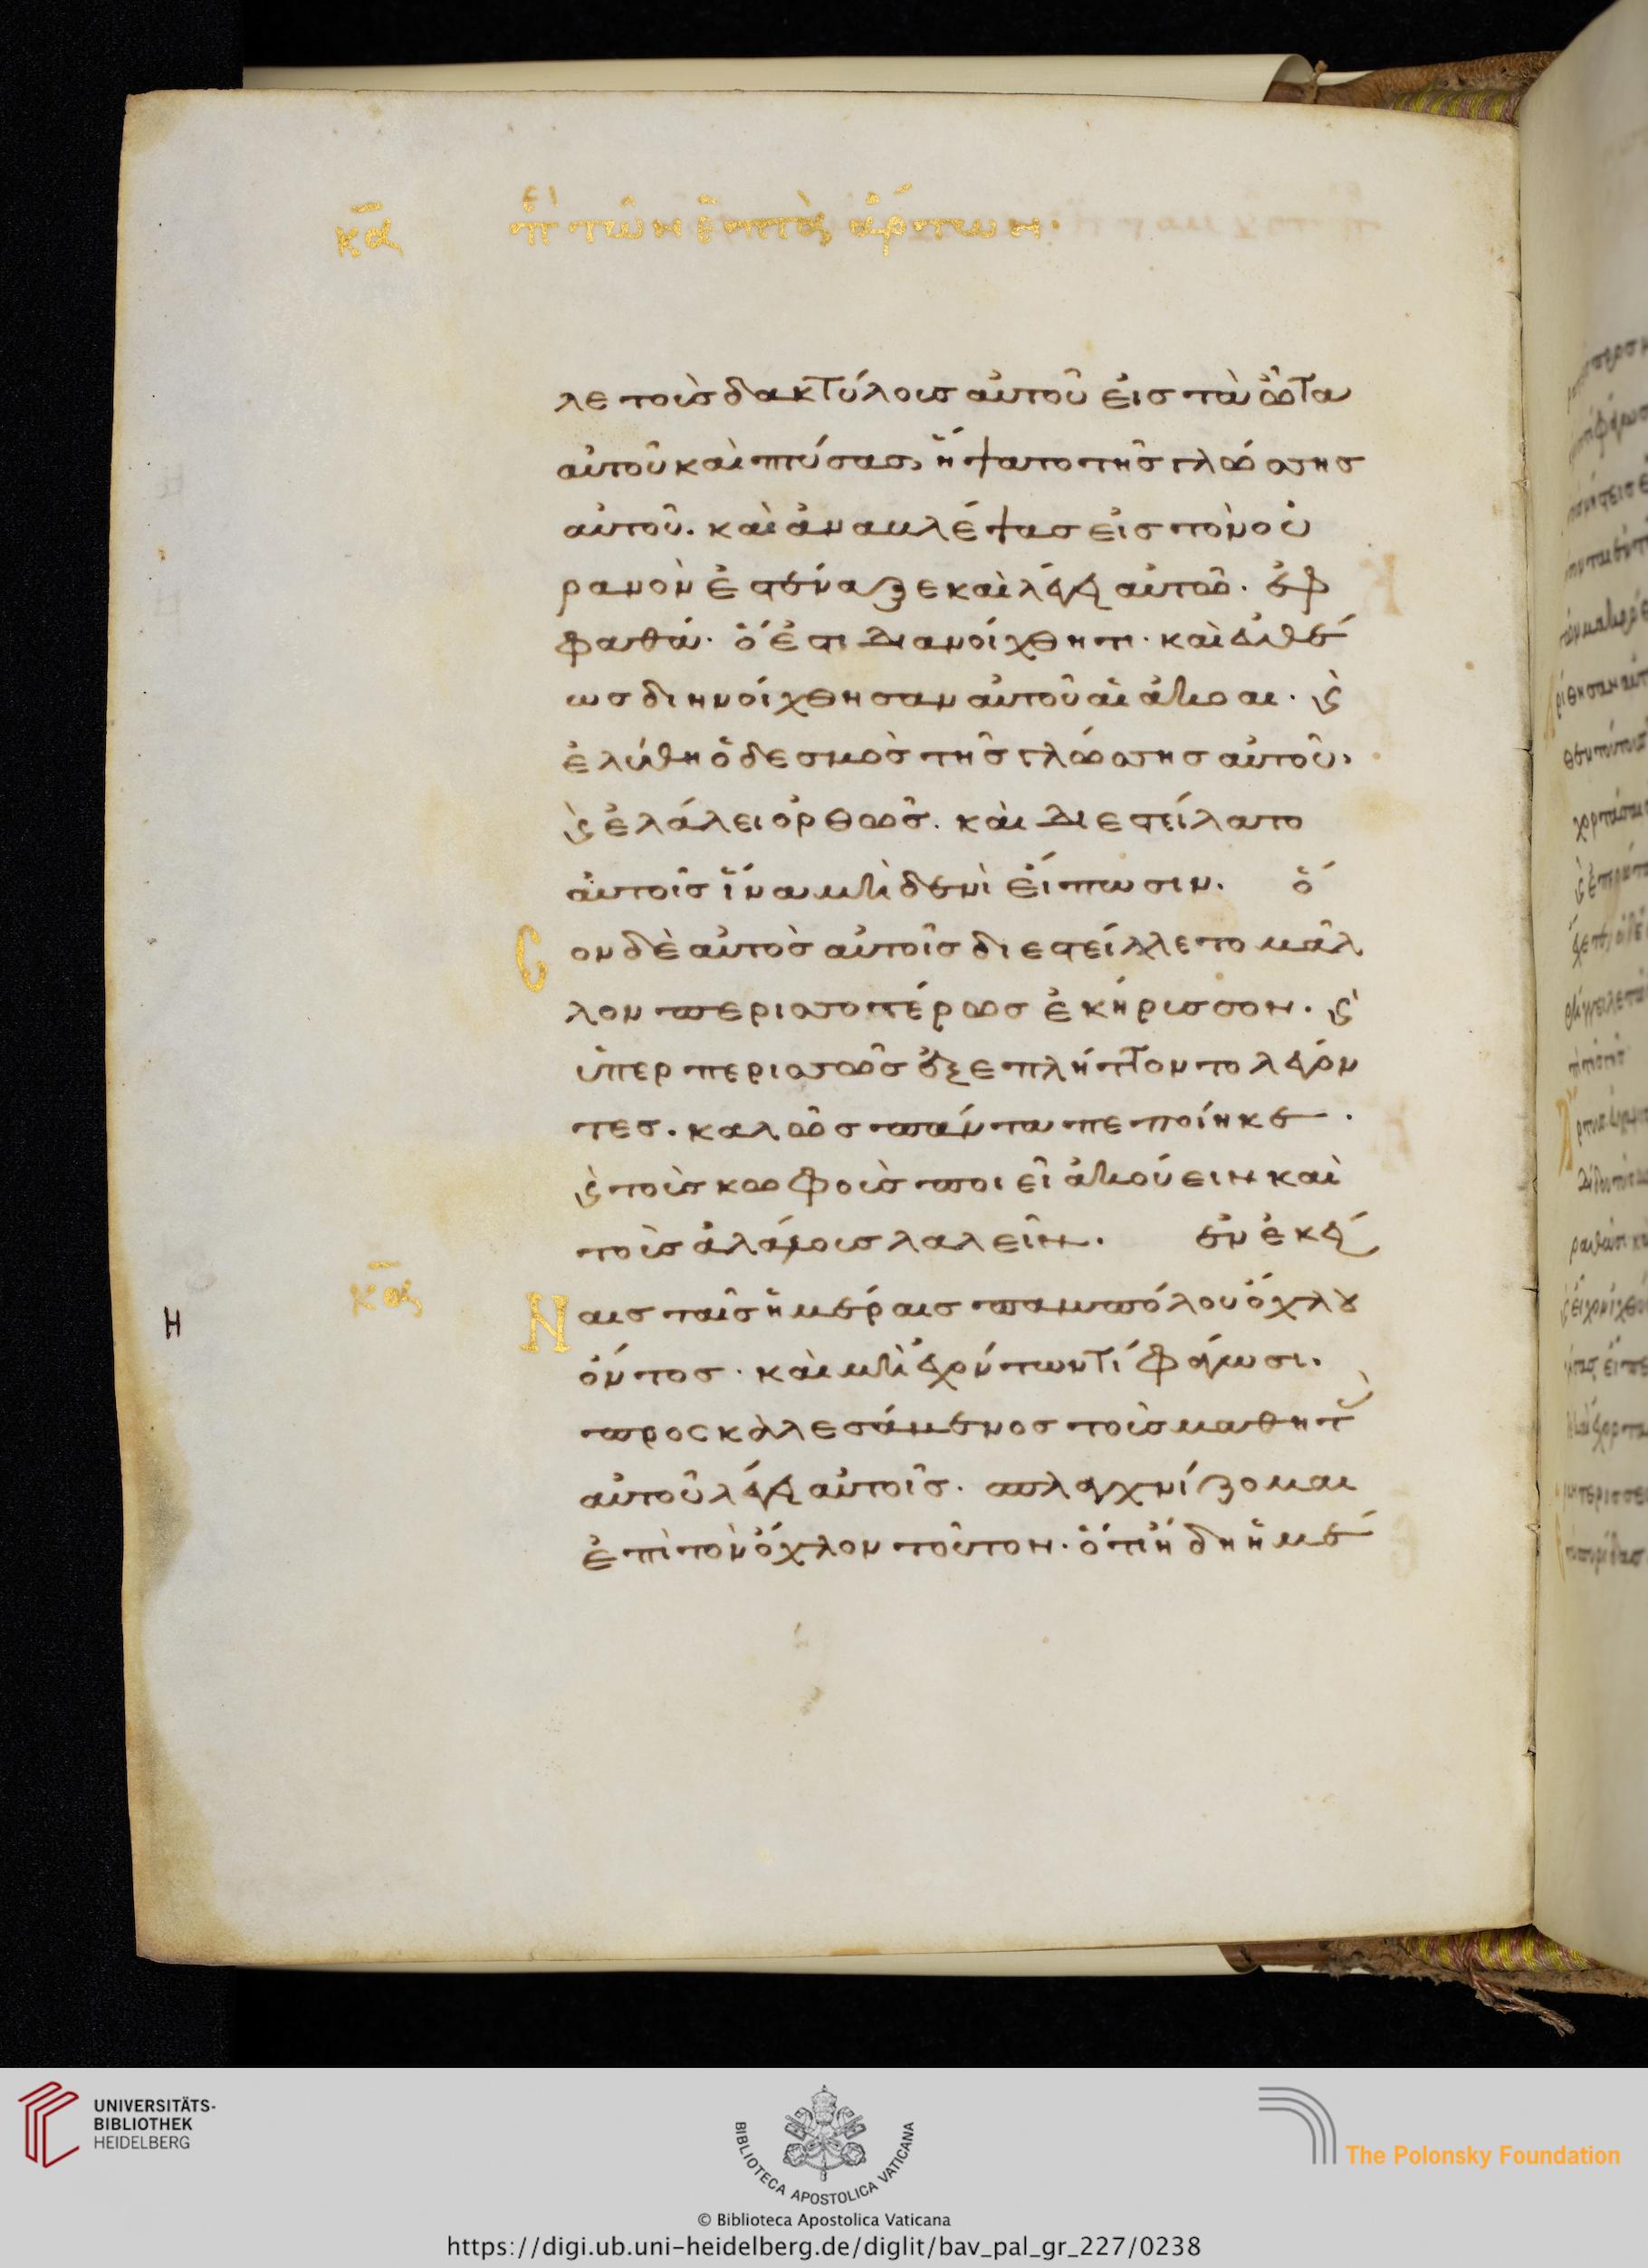 κα περὶ τῶν ἑπτὰ ἄρτων.
λε τοὺς δακτύλους αὐτοῦ εἰς τὰ ὦτα
αὐτοῦ καὶ πτύσας, ἥψατο τῆς γλώσσης
αὐτοῦ. καὶ ἀναβλέψας εἰς τὸν οὐ
ρανὸν ἐστέναξε καὶ λέγει αὐτῷ. ἐφ
φαθά. ὅ ἐστι διανοίχθητι. καὶ εὐθέ
ως διηνοίχθησαν αὐτοῦ αἱ ἀκοαί. ϗ
ἐλύθη ὁ δεσμὸς τῆς γλώσσης αὐτοῦ,
ϗ ἐλάλει ὀρθῶς. καὶ διεστείλατο
αὐτοῖς ἵνα μηδενὶ εἴπωσιν. ὅ
Cον δὲ αὐτὸς αὐτοῖς διεστέλλετο μᾶλ
λον περισσοτέρως ἐκήρυσσον. ϗ
ὑπερπερισσῶς ἐξεπλήττοντο λέγον
τες. καλῶς πάντα πεποίηκε.
ϗ τοὺς κωφοὺς ποιεῖ ἀκούειν καὶ
τοὺς ἀλάλους λαλεῖν. ἐν ἐκεί
κα
Ναις ταῖς ἡμέραις παμπόλου ὄχλου
Η
ὄντος. καὶ μὴ ἐχόντων τί φάγωσι.
προσκαλεσάμενος τοὺς μαθητ
αὐτοῦ λέγει αὐτοῖς. σπλαγχνίζομαι
ἐπὶ τὸν ὄχλον τοῦτον. ὅτι ἤδη ἡμέ
UNIVERSITÄTS-
BIBLIOTHEK
HEIDELBERG
BIBLIOTECA APOSTOLICA VATICANA
The Polonsky Foundation
© Biblioteca Apostolica Vaticana
https://digi.ub.uni-heidelberg.de/diglit/bav_pal_gr_227/0238